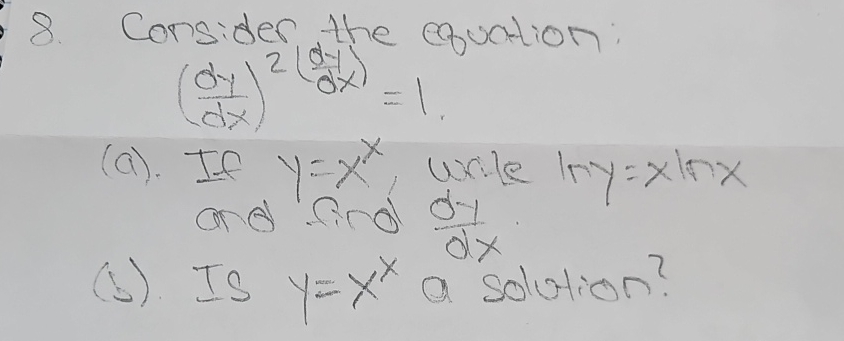 8. Consider the equation:
(dy/dx)^2(dy/dx) = 1.
(a). If y=x^x, write ln y = x ln x
and find dy/dx.
(b). Is y=x^x a solution?